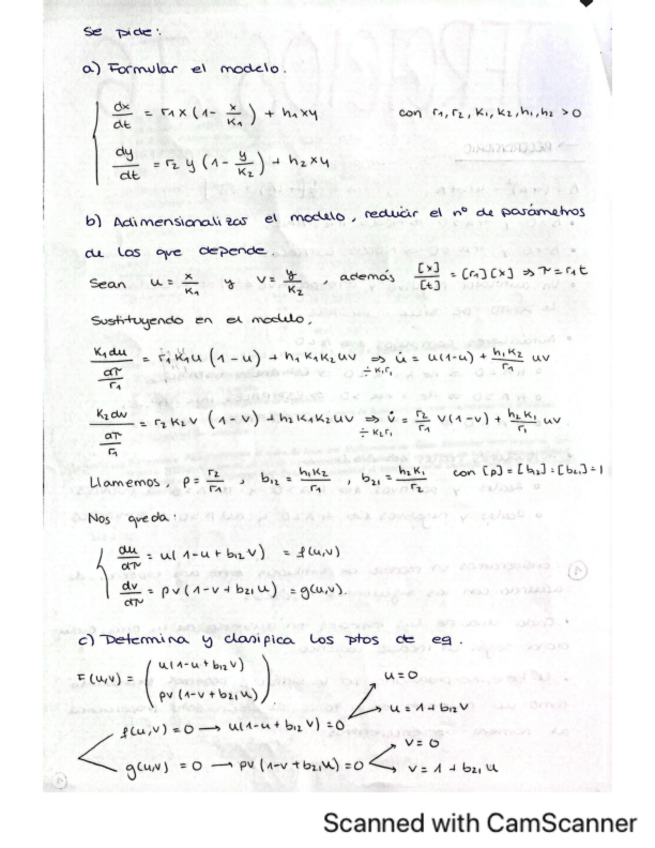 Se pide:
a) Formular el modelo.
dx/dt = r1 x (1 - x/K1) + h1xy con r1, r2, K1, K2, h1, h2 > 0
dy/dt = r2 y (1 - y/K2) + h2xy
b) Adimensionalizas el modelo, reducir el nº de parámetros
de los que depende.
Sean u = x/K1 y v = y/K2, además [x]/[t] = [r1][x] ⇒ τ = r1t
Sustituyendo en el modelo,
K1du/(dτ/r1) = r1K1u (1-u) + h1K1K2uv ⇒ ÷K1r1 u̇ = u(1-u) + h1K2/r1 uv
K2dv/(dτ/r1) = r2K2v (1-v) + h2K1K2uv ⇒ ÷K2r1 v̇ = r2/r1 v(1-v) + h2K1/r1 uv
Llamemos, ρ = r2/r1, b12 = h1K2/r1, b21 = h2K1/r2 con [ρ] = [b12] = [b21] = 1
Nos queda:
du/dτ = u(1-u+b12v) = f(u,v)
dv/dτ = ρv(1-v+b21u) = g(u,v).
c) Determina y clasifica los ptos de eq.
F(u,v) = ( u(1-u+b12v)
ρv(1-v+b21u) )
u=0
f(u,v) = 0 → u(1-u+b12v) = 0 u = 1+b12v
v=0
g(u,v) = 0 → ρv(1-v+b21u) = 0 v = 1+b21u
Scanned with CamScanner